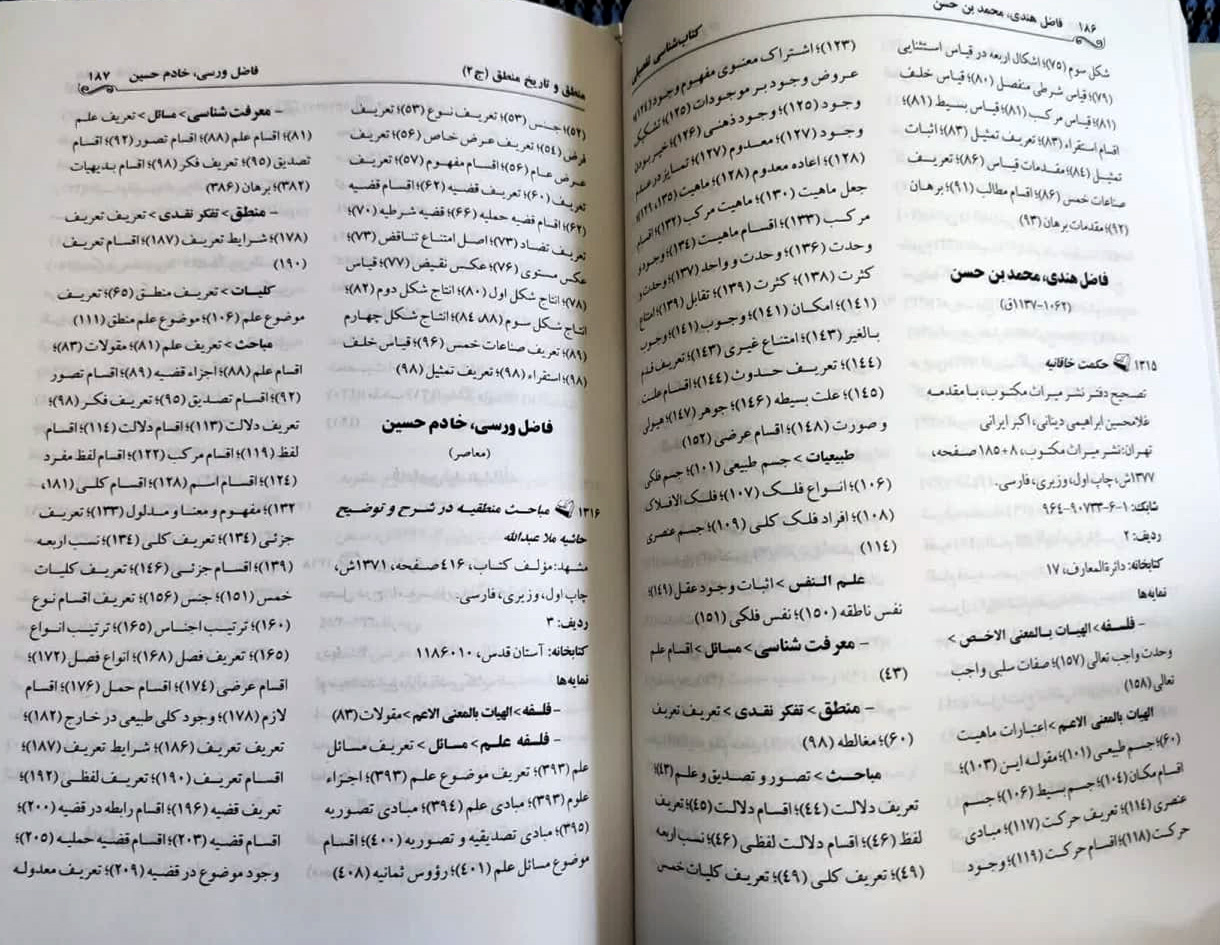 ۱۸۶ فاضل هندی، محمد بن حسن
کتاب‌شناسی تفصیلی
شکل سوم (۷۵)؛ اشکال اربعه در قیاس استثنایی
(۷۹)؛ قیاس شرطی منفصل (۸۰)؛ قیاس خلف
(۸۱)؛ قیاس مرکب (۸۱)؛ قیاس بسیط (۸۱)؛
اقسام استقراء (۸۳)؛ تعریف تمثیل (۸۳)؛ اثبات
تمثیل (۸۴)؛ مقدمات قیاس (۸۶)؛ تعریف
صناعات خمس (۸۶)؛ اقسام مطالب (۹۱)؛ برهان
(۹۲)؛ مقدمات برهان (۹۳)
فاضل هندی، محمد بن حسن
(۱۰۶۲-۱۱۳۷ق)
۱۳۱۵ حکمت خاقانیه
تصحیح دفتر نشر میراث مکتوب، با مقدمه
غلامحسین ابراهیمی دینانی، اکبر ایرانی
تهران: نشر میراث مکتوب، ۸+۱۸۵ صفحه،
۱۳۷۷ش، چاپ اول، وزیری، فارسی.
شابک: ۱-۶-۹۰۷۳۳-۹۶۴
ردیف: ۲
کتابخانه: دائرةالمعارف، ۱۷
نمایه‌ها
- فلسفه > الهیات بالمعنی الاخص >
وحدت واجب تعالی (۱۵۷)؛ صفات سلبی واجب
تعالی (۱۵۸)
الهیات بالمعنی الاعم > اعتبارات ماهیت
(۶۰)؛ جسم طبیعی (۱۰۱)؛ مقوله این (۱۰۳)؛
اقسام مکان (۱۰۴)؛ جسم بسیط (۱۰۶)؛ جسم
عنصری (۱۱۴)؛ تعریف حرکت (۱۱۷)؛ مبادی
حرکت (۱۱۸)؛ اقسام حرکت (۱۱۹)؛ وجود
(۱۲۳)؛ اشتراک معنوی مفهوم وجود (۱۲۴)؛
عروض وجود بر موجودات (۱۲۵)؛ تشکیک
وجود (۱۲۵)؛ وجود ذهنی (۱۲۶)؛ خیر بودن
وجود (۱۲۷)؛ معدوم (۱۲۷)؛ تمایز در عدم
(۱۲۸)؛ اعاده معدوم (۱۲۸)؛ ماهیت (۱۲۹، ۱۳۵)؛
جعل ماهیت (۱۳۰)؛ ماهیت مرکب (۱۳۲)؛ اقسام
مرکب (۱۳۳)؛ اقسام ماهیت (۱۳۴)؛ وجود و
وحدت (۱۳۶)؛ وحدت و واحد (۱۳۷)؛ وحدت و
کثرت (۱۳۸)؛ کثرت (۱۳۹)؛ تقابل (۱۳۹)؛ امتناع
(۱۴۱)؛ امکان (۱۴۱)؛ وجوب (۱۴۱)؛ وجوب
بالغیر (۱۴۳)؛ امتناع غیری (۱۴۳)؛ تعریف قدم
(۱۴۴)؛ تعریف حدوث (۱۴۴)؛ اقسام علت
(۱۴۵)؛ علت بسیطه (۱۴۶)؛ جوهر (۱۴۷)؛ هیولی
و صورت (۱۴۸)؛ اقسام عرضی (۱۵۲)
طبیعیات > جسم طبیعی (۱۰۱)؛ جسم فلکی
(۱۰۶)؛ انواع فلک (۱۰۷)؛ فلک الافلاک
(۱۰۸)؛ افراد فلک کلی (۱۰۹)؛ جسم عنصری
(۱۱۴)
علم النفس > اثبات وجود عقل (۱۴۹)؛
نفس ناطقه (۱۵۰)؛ نفس فلکی (۱۵۱)
- معرفت شناسی > مسائل > اقسام علم
(۴۳)
- منطق > تفکر نقدی > تعریف تعریف
(۶۰)؛ مغالطه (۹۸)
مباحث > تصور و تصدیق و علم (۴۳)؛
تعریف دلالت (۴۴)؛ اقسام دلالت (۴۵)؛ تعریف
لفظ (۴۶)؛ اقسام دلالت لفظی (۴۶)؛ نسب اربعه
(۴۹)؛ تعریف کلی (۴۹)؛ تعریف کلیات خمس
منطق و تاریخ منطق (ج۲)
فاضل ورسی، خادم حسین ۱۸۷
(۵۲)؛ جنس (۵۳)؛ تعریف نوع (۵۳)؛ تعریف
فرض (۵۴)؛ تعریف عرض خاص (۵۶)؛ تعریف
عرض عام (۵۶)؛ اقسام مفهوم (۵۷)؛ تعریف
تعریف (۶۰)؛ تعریف قضیه (۶۲)؛ اقسام قضیه
(۶۲)؛ اقسام قضیه حملیه (۶۶)؛ قضیه شرطیه (۷۰)؛
تعریف تضاد (۷۳)؛ اصل امتناع تناقض (۷۳)؛
عکس مستوی (۷۶)؛ عکس نقیض (۷۷)؛ قیاس
(۷۸)؛ انتاج شکل اول (۸۰)؛ انتاج شکل دوم (۸۲)؛
انتاج شکل سوم (۸۸، ۸۴)؛ انتاج شکل چهارم
(۸۹)؛ تعریف صناعات خمس (۹۶)؛ قیاس خلف
(۹۸)؛ استقراء (۹۸)؛ تعریف تمثیل (۹۸)
فاضل ورسی، خادم حسین
(معاصر)
۱۳۱۶ مباحث منطقیه در شرح و توضیح
حاشیه ملا عبدالله
مشهد: مؤلف کتاب، ۴۱۶ صفحه، ۱۳۷۱ش،
چاپ اول، وزیری، فارسی.
ردیف: ۳
کتابخانه: آستان قدس، ۱۱۸۶۰۱۰
نمایه‌ها
- فلسفه > الهیات بالمعنی الاعم > مقولات (۸۳)
- فلسفه علم > مسائل > تعریف مسائل
علم (۳۹۳)؛ تعریف موضوع علم (۳۹۳)؛ اجزاء
علوم (۳۹۳)؛ مبادی علم (۳۹۴)؛ مبادی تصوریه
(۳۹۵)؛ مبادی تصدیقیه و تصوریه (۴۰۰)؛ اقسام
موضوع مسائل علم (۴۰۱)؛ رؤوس ثمانیه (۴۰۸)
- معرفت شناسی > مسائل > تعریف علم
(۸۱)؛ اقسام علم (۸۸)؛ اقسام تصور (۹۲)؛ اقسام
تصدیق (۹۵)؛ تعریف فکر (۹۸)؛ اقسام بدیهیات
(۳۸۲)؛ برهان (۳۸۶)
- منطق > تفکر نقدی > تعریف تعریف
(۱۷۸)؛ شرایط تعریف (۱۸۷)؛ اقسام تعریف
(۱۹۰)
کلیات > تعریف منطق (۶۵)؛ تعریف
موضوع علم (۱۰۶)؛ موضوع علم منطق (۱۱۱)
مباحث > تعریف علم (۸۱)؛ مقولات (۸۳)؛
اقسام علم (۸۸)؛ اجزاء قضیه (۸۹)؛ اقسام تصور
(۹۲)؛ اقسام تصدیق (۹۵)؛ تعریف فکر (۹۸)؛
تعریف دلالت (۱۱۳)؛ اقسام دلالت (۱۱۴)؛ اقسام
لفظ (۱۱۹)؛ اقسام مرکب (۱۲۲)؛ اقسام لفظ مفرد
(۱۲۴)؛ اقسام اسم (۱۲۸)؛ اقسام کلی (۱۸۱،
۱۳۲)؛ مفهوم و معنا و مدلول (۱۳۳)؛ تعریف
جزئی (۱۳۴)؛ تعریف کلی (۱۳۴)؛ نسب اربعه
(۱۳۹)؛ اقسام جزئی (۱۴۶)؛ تعریف کلیات
خمس (۱۵۱)؛ جنس (۱۵۶)؛ تعریف اقسام نوع
(۱۶۰)؛ ترتیب اجناس (۱۶۵)؛ ترتیب انواع
(۱۶۵)؛ تعریف فصل (۱۶۸)؛ انواع فصل (۱۷۲)؛
اقسام عرضی (۱۷۴)؛ اقسام حمل (۱۷۶)؛ اقسام
لازم (۱۷۸)؛ وجود کلی طبیعی در خارج (۱۸۲)؛
تعریف تعریف (۱۸۶)؛ شرایط تعریف (۱۸۷)؛
اقسام تعریف (۱۹۰)؛ تعریف لفظی (۱۹۲)؛
تعریف قضیه (۱۹۶)؛ اقسام رابطه در قضیه (۲۰۰)؛
اقسام قضیه (۲۰۳)؛ اقسام قضیه حملیه (۲۰۵)؛
وجود موضوع در قضیه (۲۰۹)؛ تعریف معدوله